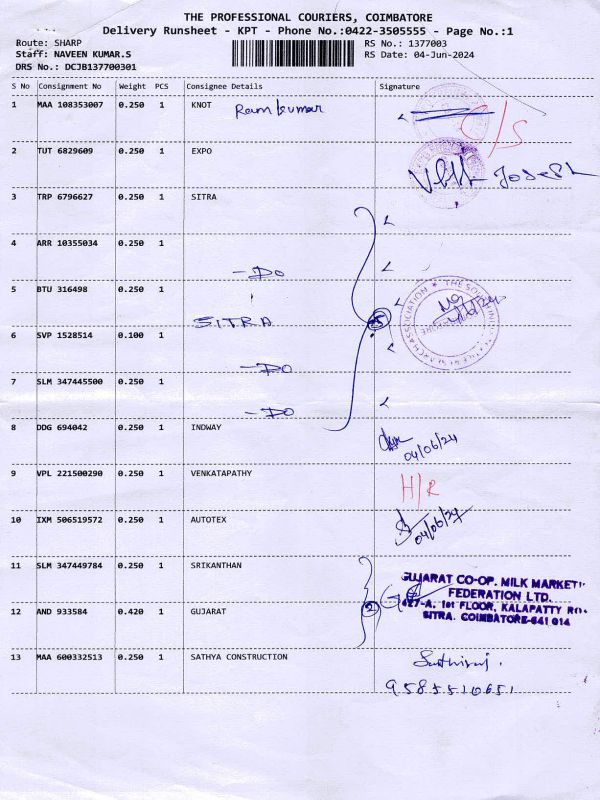 THE PROFESSIONAL COURIERS, COIMBATORE
Delivery Runsheet - KPT - Phone No.:0422-3505555 - Page No.:1
Route: SHARP
RS No.: 1377003
Staff: NAVEEN KUMAR.S
RS Date: 04-Jun-2024
DRS No.: DCJB137700301
S No Consignment No Weight PCS Consignee Details Signature
1 MAA 108353007 0.250 1 KNOT Ram kumar C/S
2 TUT 6829609 0.250 1 EXPO Joseph
3 TRP 6796627 0.250 1 SITRA
4 ARR 10355034 0.250 1
-DO
5 BTU 316498 0.250 1
SITRA 5
6 SVP 1528514 0.100 1
-DO
7 SLM 347445500 0.250 1
-DO
8 DDG 694042 0.250 1 INDWAY
04/06/24
9 VPL 221500290 0.250 1 VENKATAPATHY
H/R
10 IXM 506519572 0.250 1 AUTOTEX
04/06/24
11 SLM 347449784 0.250 1 SRIKANTHAN
GUJARAT CO-OP. MILK MARKETI
FEDERATION LTD.
12 AND 933584 0.420 1 GUJARAT 2
427-A, 1st FLOOR, KALAPATTY RO
SITRA, COIMBATORE-641 014
13 MAA 600332513 0.250 1 SATHYA CONSTRUCTION
9585510651